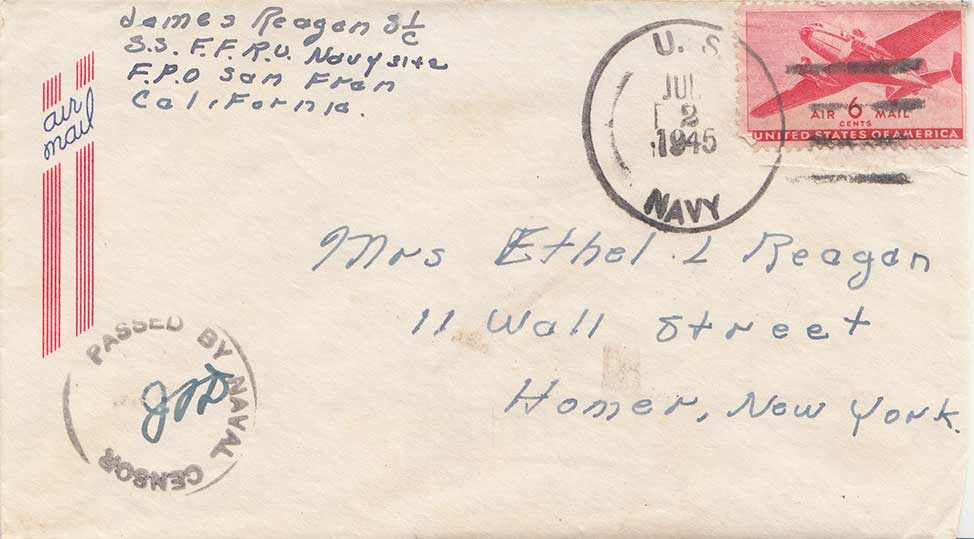 James Reagan S 1/c
S.S. F.F.R.U. Navy site
F.P.O San Fran
California.
air
mail
U.S.
JUL
2
1945
NAVY
AIR 6 MAIL
CENTS
UNITED STATES OF AMERICA
Mrs Ethel L Reagan
11 Wall Street
Homer, New York.
PASSED BY NAVAL CENSOR